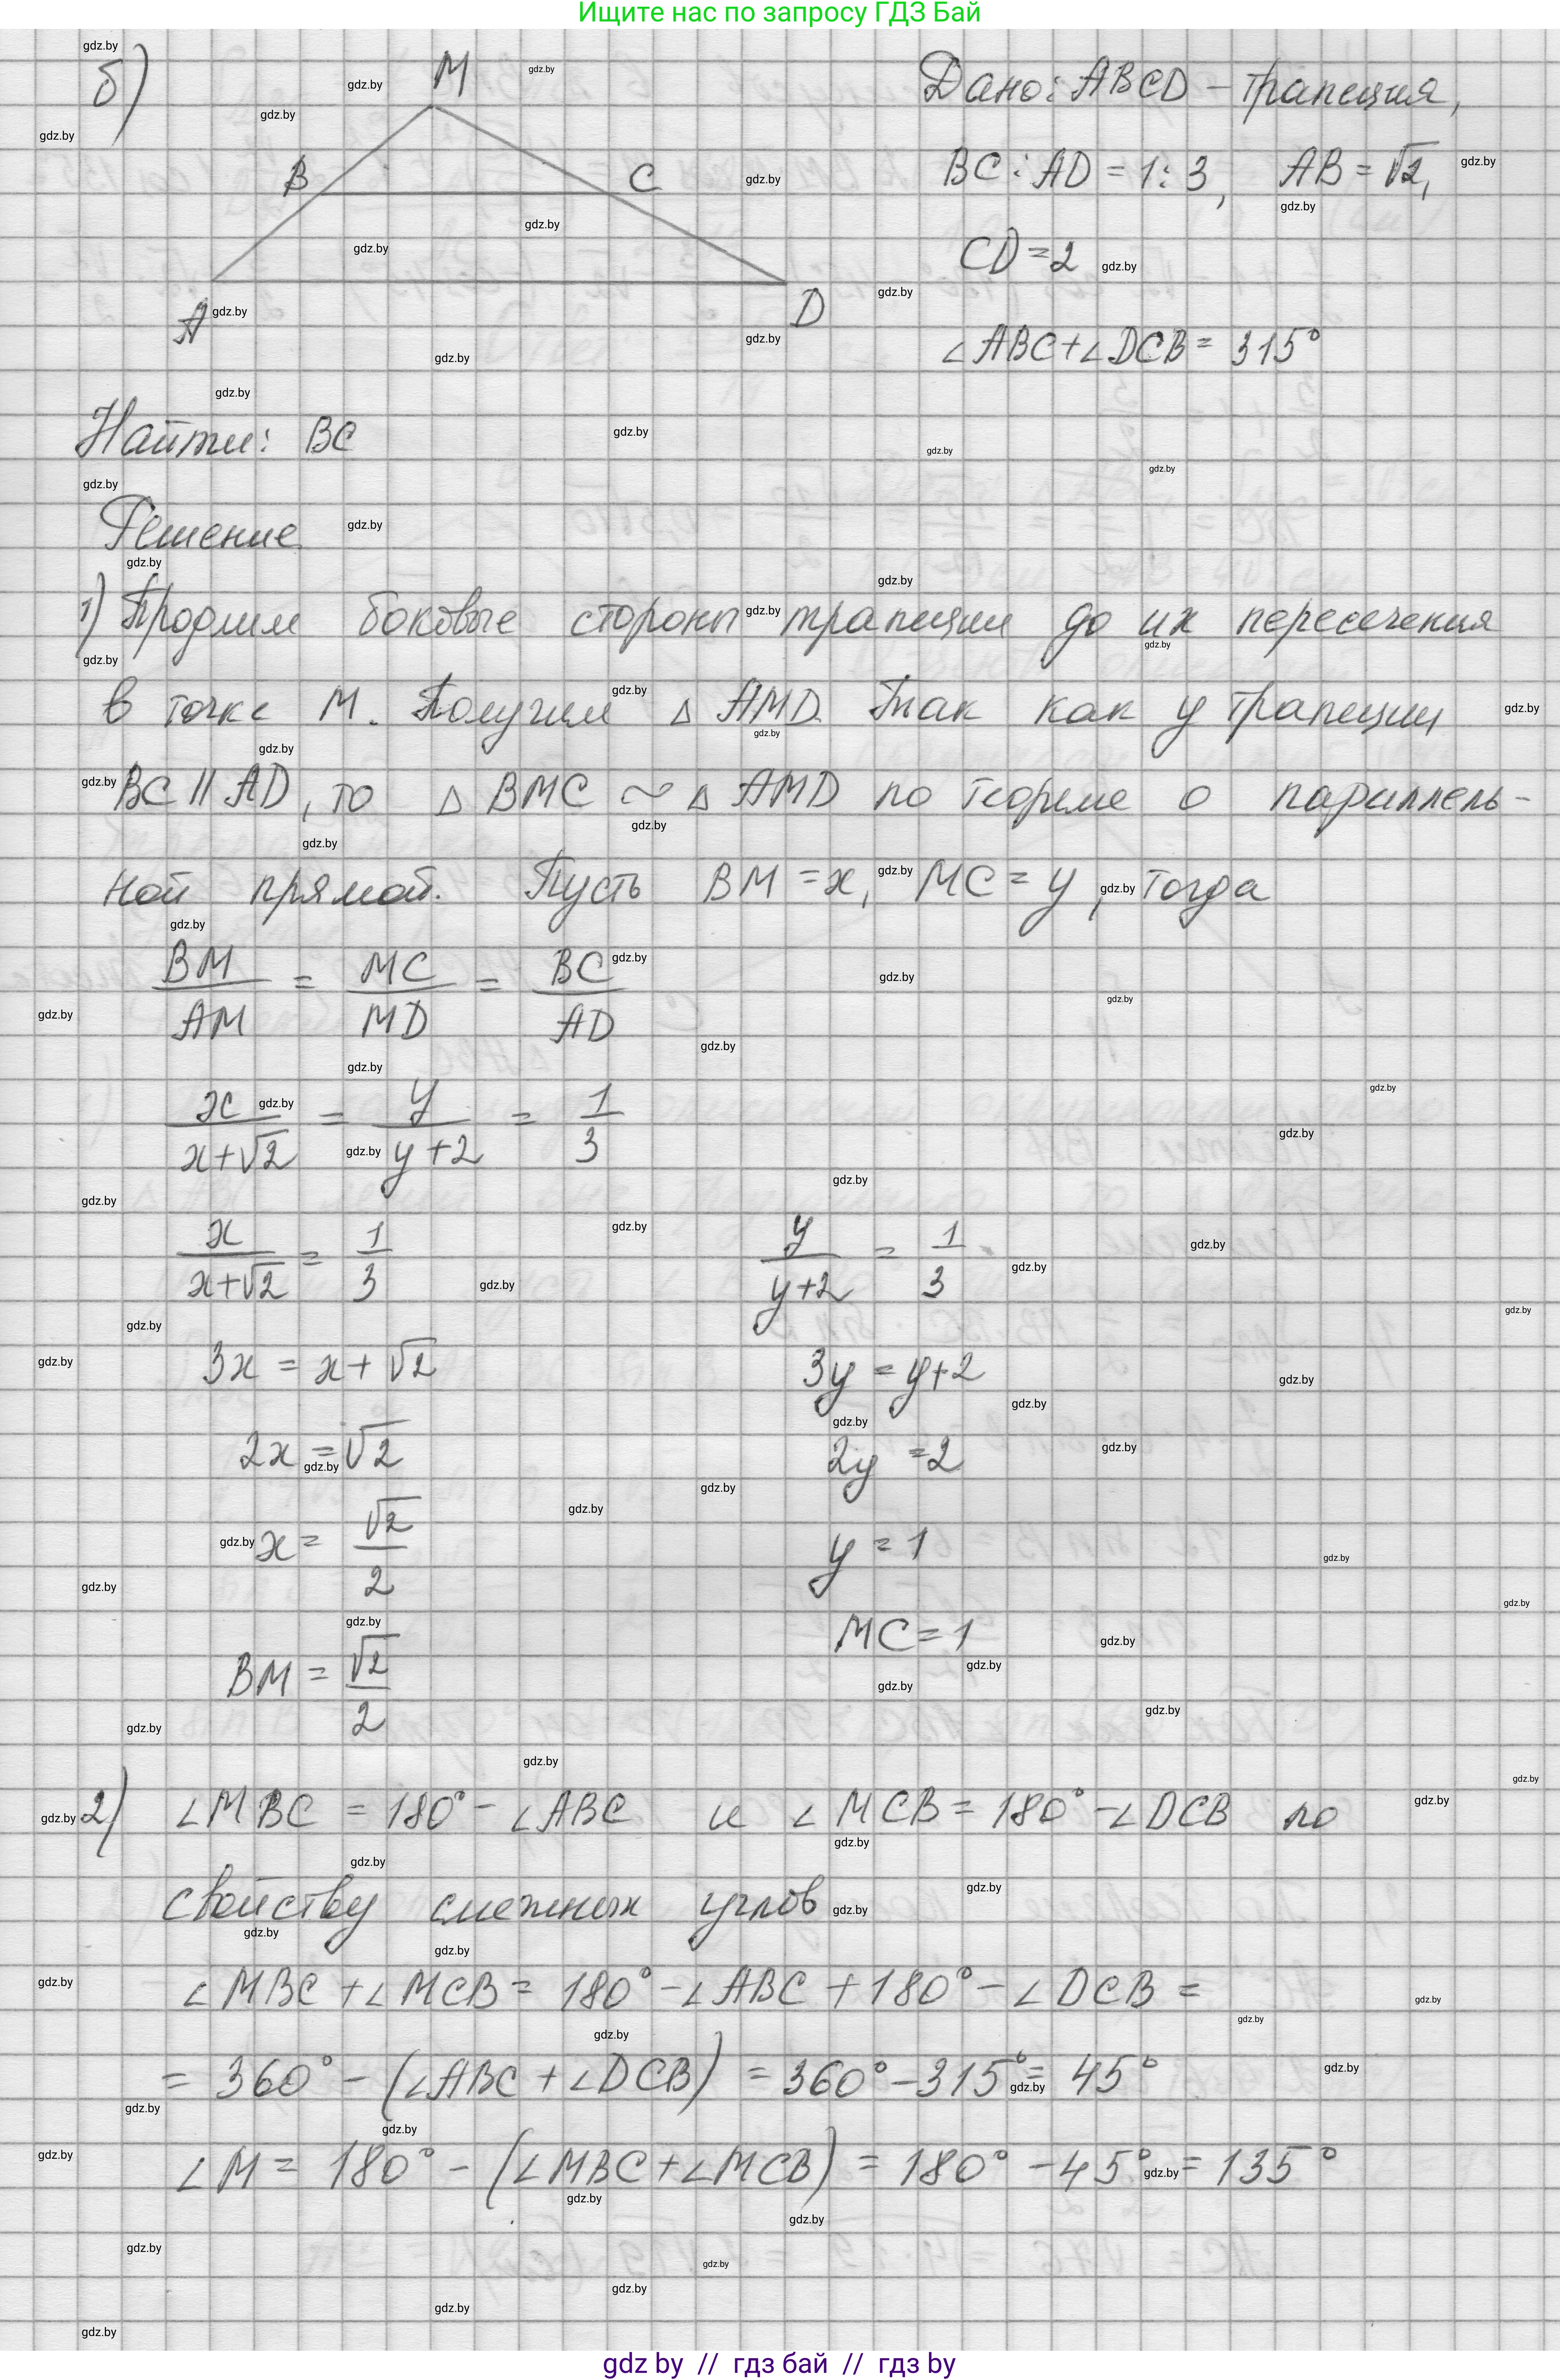 Ищите нас по запросу ГДЗ Бай
б)
M
B
C
A
D
Дано: ABCD – трапеция,
BC : AD = 1 : 3, AB = √2,
CD = 2
∠ABC + ∠DCB = 315°
Найти: BC
Решение
1) Продлим боковые стороны трапеции до их пересечения
в точке M. Получим △ AMD. Так как у трапеции
BC || AD, то △ BMC ~ △ AMD по теореме о параллель-
ной прямой. Пусть BM = x, MC = y, тогда
BM/AM = MC/MD = BC/AD
x/(x+√2) = y/(y+2) = 1/3
x/(x+√2) = 1/3
3x = x + √2
2x = √2
x = √2/2
BM = √2/2
y/(y+2) = 1/3
3y = y+2
2y = 2
y = 1
MC = 1
2) ∠MBC = 180° – ∠ABC и ∠MCB = 180° – ∠DCB по
свойству смежных углов
∠MBC + ∠MCB = 180° – ∠ABC + 180° – ∠DCB =
= 360° – (∠ABC + ∠DCB) = 360° – 315° = 45°
∠M = 180° – (∠MBC + ∠MCB) = 180° – 45° = 135°
gdz by // гдз бай // гдз by